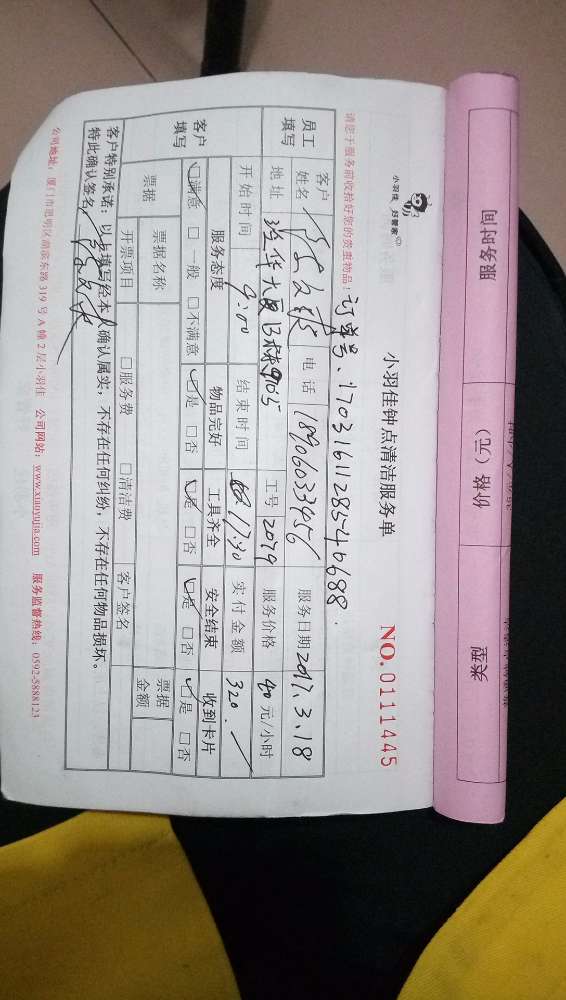 服务时间 价格（元） 类型
小羽佳 好管家
小羽佳钟点清洁服务单
NO.0111445
请您于服务前收拾好您的贵重物品！
订单号、17031611285440688.
员工填写
客户姓名 电话 18906033456 服务日期 2017.3.18
地址 华大厦B栋9105 工号 2079 服务价格 40 元/小时
开始时间 9:00 结束时间 17:30 实付金额 320.
客户填写
服务态度 物品完好 工具齐全 安全结束 收到卡片
☑满意 □一般 □不满意 ☑是 □否 ☑是 □否 ☑是 □否 ☑是 □否
票据 票据名称 票据金额
开票项目 □服务费 □清洁费 客户签名
客户特别承诺：以上填写经本人确认属实，不存在任何纠纷，不存在任何物品损坏。
特此确认签名
公司地址：厦门市思明区湖滨东路319号A幢2层小羽佳 公司网站：www.xiaoyujia.com 服务监督热线：0592-5888123